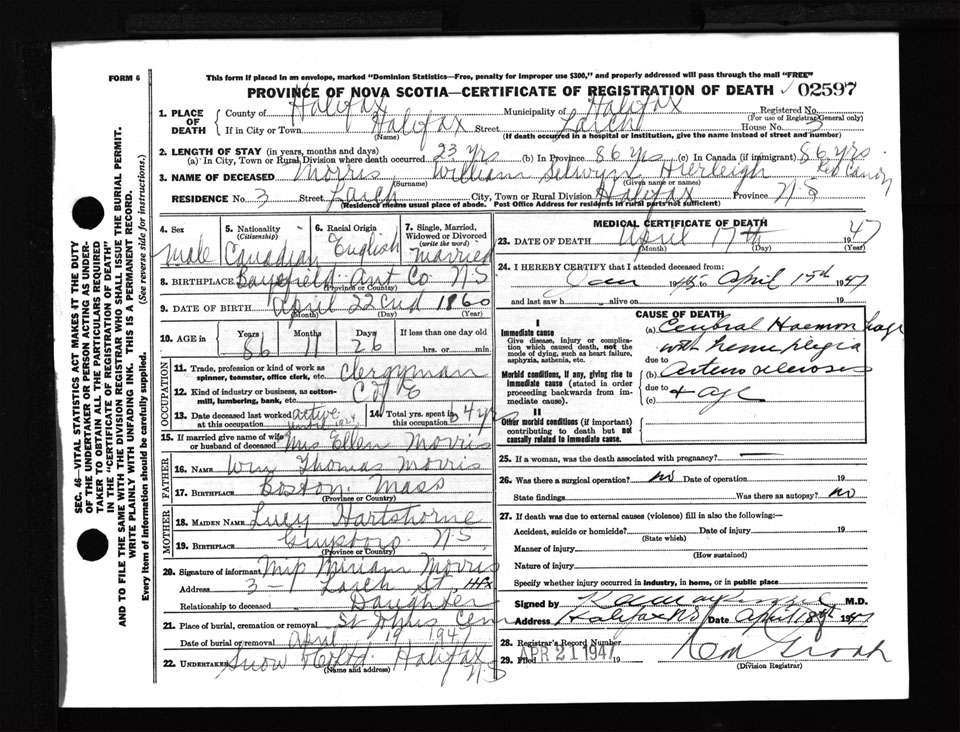 FORM 6
This form if placed in an envelope, marked "Dominion Statistics—Free, penalty for improper use $300," and properly addressed will pass through the mail "FREE"
PROVINCE OF NOVA SCOTIA—CERTIFICATE OF REGISTRATION OF DEATH 02597
1. PLACE OF DEATH County of Halifax Municipality of Halifax Registered No. (For use of Registrar General only)
If in City or Town Halifax (Name) Street Larch House No. 3
(If death occurred in a hospital or institution, give the name instead of street and number)
2. LENGTH OF STAY (in years, months and days)
(a) In City, Town or Rural Division where death occurred 23 yrs (b) In Province 86 yrs (c) In Canada (if immigrant) 86 yrs.
3. NAME OF DECEASED Morris (Surname) William Selwyn Hierleigh (Given name or names)
RESIDENCE No. 3 Street Larch City, Town or Rural Division Halifax Province N S
(Residence means usual place of abode. Post Office Address for residents in rural parts not sufficient)
4. Sex Male
5. Nationality (Citizenship) Canadian
6. Racial Origin English
7. Single, Married, Widowed or Divorced (write the word) Married
8. BIRTHPLACE Bayfield Ant Co N S (Province or Country)
9. DATE OF BIRTH April (Month) 22nd (Day) 1860 (Year)
10. AGE in Years 86 Months 11 Days 26 If less than one day old hrs. or min.
OCCUPATION
11. Trade, profession or kind of work as spinner, teamster, office clerk, etc. Clergyman
12. Kind of industry or business, as cotton-mill, lumbering, bank, etc. C of E
13. Date deceased last worked at this occupation active
14. Total yrs. spent in this occupation 64 yrs
15. If married give name of wife or husband of deceased Mrs Ellen Morris
FATHER
16. NAME Wm Thomas Morris
17. BIRTHPLACE Boston Mass (Province or Country)
MOTHER
18. MAIDEN NAME Lucy Hartshorne
19. BIRTHPLACE Guysboro N.S. (Province or Country)
20. Signature of informant Miriam Morris
Address 3 - Larch St. Hfx
Relationship to deceased Daughter
21. Place of burial, cremation or removal St Johns Cem
Date of burial or removal April 19 1947
22. Undertaker Snow & Co Ltd. Halifax N S
(Name and address)
MEDICAL CERTIFICATE OF DEATH
23. DATE OF DEATH April (Month) 17th (Day) 1947 (Year)
24. I HEREBY CERTIFY that I attended deceased from:
Jan 1945 to April 1947
and last saw h alive on 19
CAUSE OF DEATH
I
Immediate cause
Give disease, injury or complication which caused death, not the mode of dying, such as heart failure, asphyxia, asthenia, etc.
(a) Cerebral Haemorrhage
with hemiplegia
due to
Morbid conditions, if any, giving rise to immediate cause (stated in order proceeding backwards from immediate cause).
(b) Arteriosclerosis
due to
(c) + age
II
Other morbid conditions (if important) contributing to death but not causally related to immediate cause.
25. If a woman, was the death associated with pregnancy? —
26. Was there a surgical operation? no Date of operation 19
State findings Was there an autopsy? no
27. If death was due to external causes (violence) fill in also the following:—
Accident, suicide or homicide? (State which) Date of injury 19
Manner of injury (How sustained)
Nature of injury
Specify whether injury occurred in industry, in home, or in public place
Signed by M.D.
Address Halifax N S Date April 18th 1947
28. Registrar's Record Number
29. Filed APR 21 1947 19
(Division Registrar)
SEC. 46—VITAL STATISTICS ACT MAKES IT THE DUTY
OF THE UNDERTAKER OR PERSON ACTING AS UNDER-
TAKER TO OBTAIN ALL THE PARTICULARS REQUIRED
IN THE "CERTIFICATE OF REGISTRATION OF DEATH"
AND TO FILE THE SAME WITH THE DIVISION REGISTRAR WHO SHALL ISSUE THE BURIAL PERMIT.
WRITE PLAINLY WITH UNFADING INK. THIS IS A PERMANENT RECORD.
Every item of information should be carefully supplied. (See reverse side for instructions.)